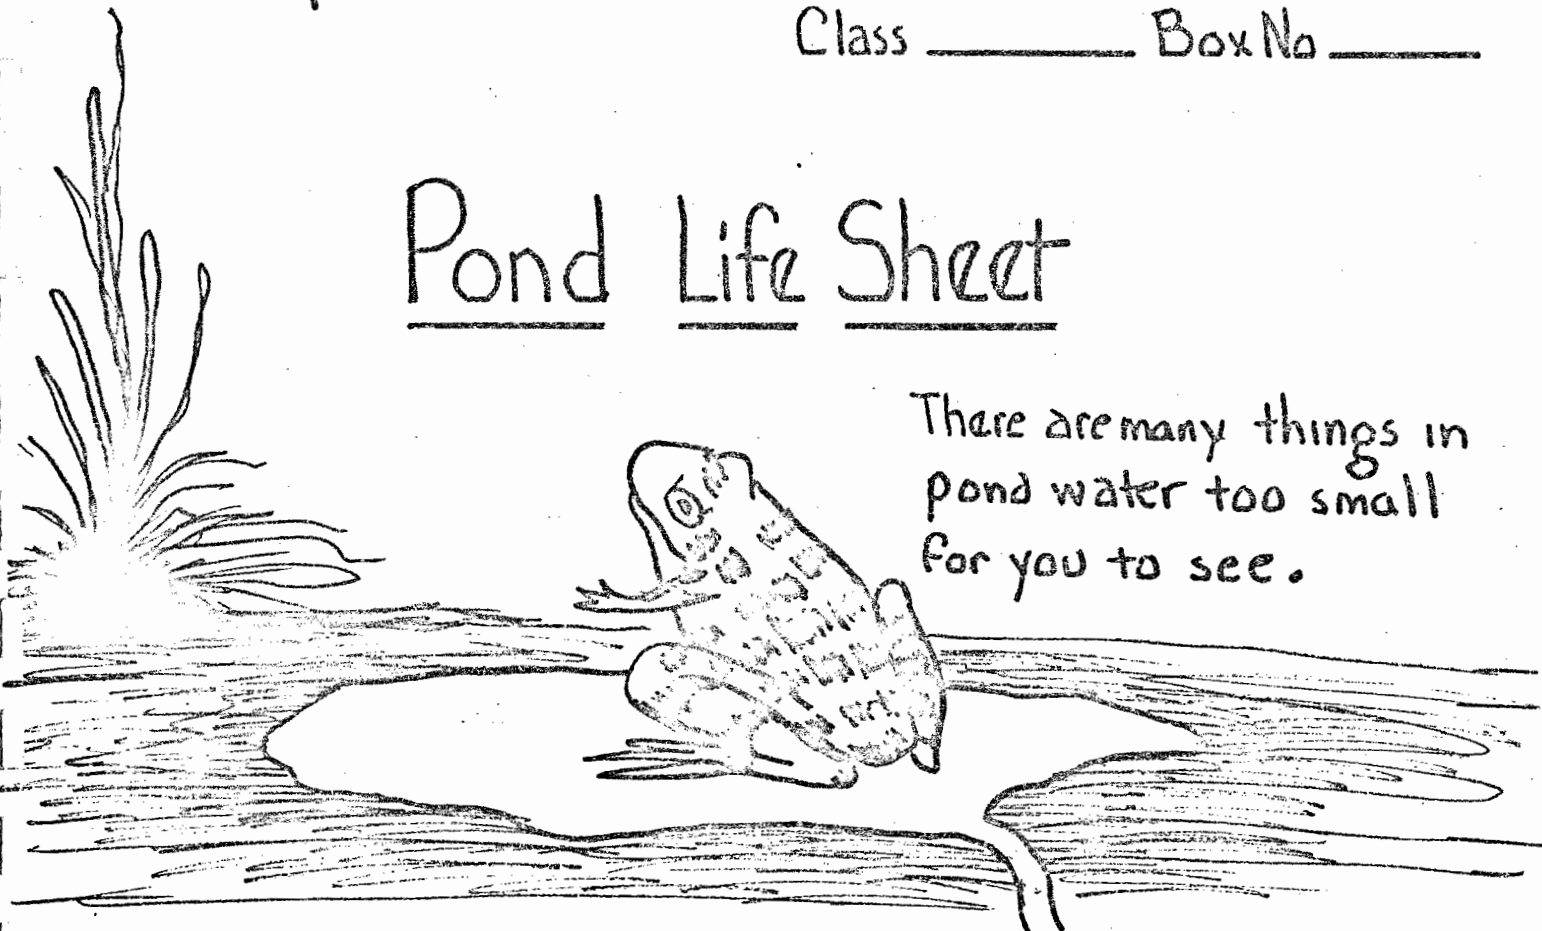 Class ________ Box No ______
Pond Life Sheet
There are many things in
pond water too small
for you to see.